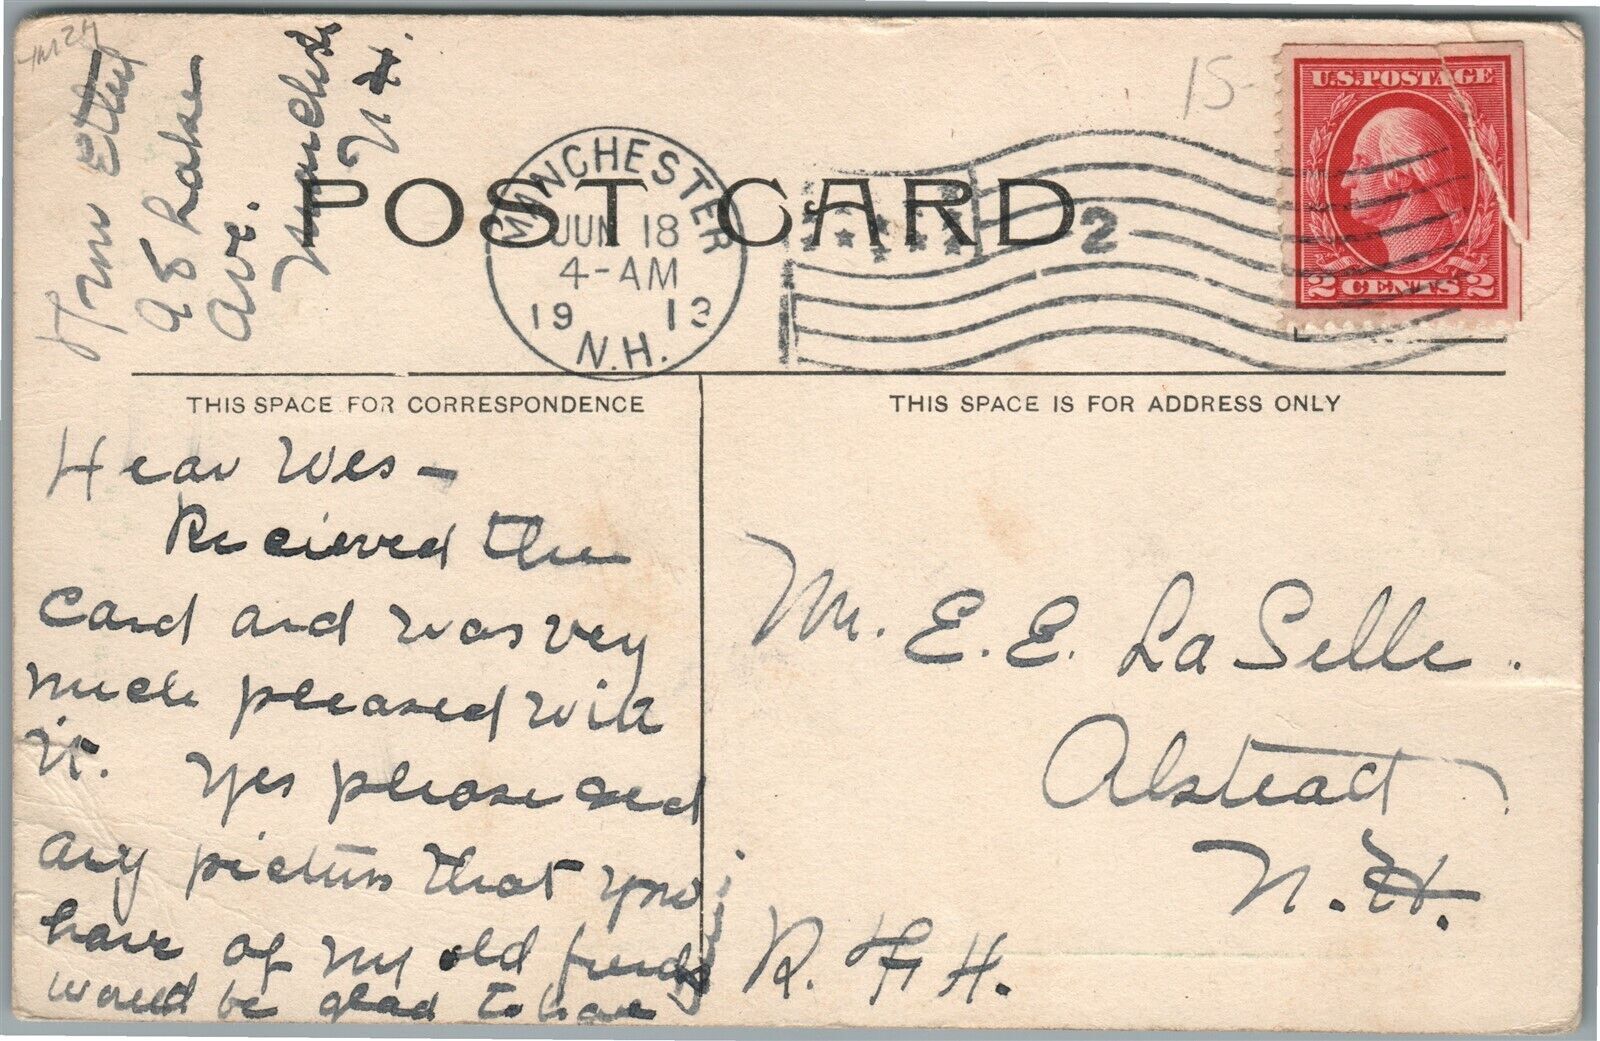 U.S. POSTAGE
2 CENTS 2
15-
POST CARD
MANCHESTER
JUN 18
4-AM
1913
N.H.
2
98 Lake
Ave.
Manchester
N H.
THIS SPACE FOR CORRESPONDENCE
THIS SPACE IS FOR ADDRESS ONLY
Dear Wes -
Recieved the
card and was very
much pleased with
it. Yes please send
any pictures that you
have of my old friends
would be glad to have
Mr. E. E. LaSelle.
Alstead,
N. H.